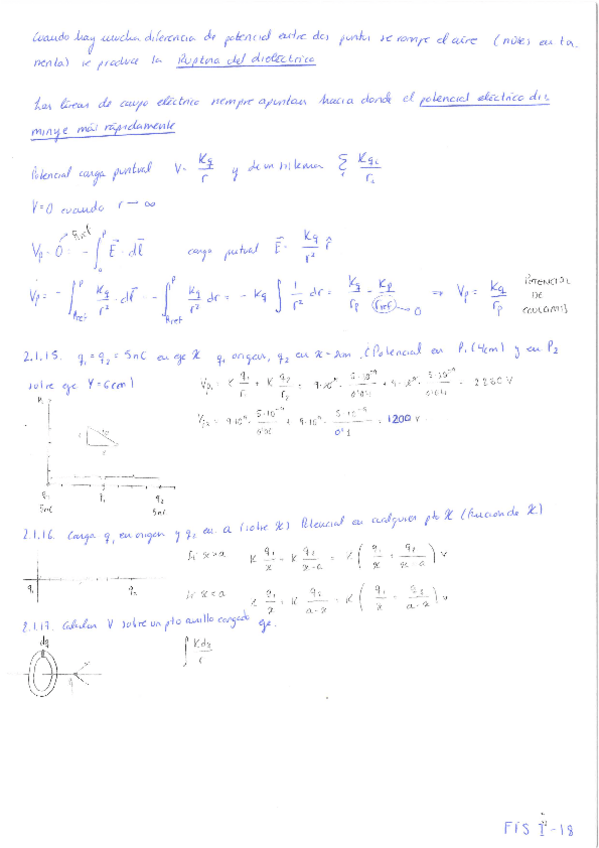 Cuando hay mucha diferencia de potencial entre dos puntos se rompe el aire (nubes en tor
mentas) se produce la Ruptura del dieléctrico
Las líneas de campo eléctrico siempre apuntan hacia donde el potencial eléctrico dis
minuye más rápidamente
Potencial carga puntual V = Kq/r y de un sistema Σ_i Kq_i/r_i
V=0 cuando r → ∞
V_P - 0 = - ∫ P E · dl carga puntual E = Kq/r² r̂
V_P = - ∫_Ref^P Kq/r² · dl = - ∫_Ref^P Kq/r² dr = - Kq ∫ 1/r² dr = Kq/r_P - Kq/r_ref → 0 ⇒ V_P = Kq/r_P POTENCIAL DE COULOMB
2.1.15. q₁ = q₂ = 5nC en eje X q₁ origen, q₂ en x = 8cm. (Potencial en P₁ (4cm) y en P₂
sobre eje Y = 6cm)
V_P₁ = K q₁/r₁ + K q₂/r₂ = 9·10⁹ · 5·10⁻⁹/0'04 + 9·10⁹ · 5·10⁻⁹/0'04 = 2250 V
V_P₂ = 9·10⁹ · 5·10⁻⁹/0'06 + 9·10⁹ · 5·10⁻⁹/0'1 = 1200 V.
q₁ P₁ q₂
5nC 5nC
2.1.16. Carga q₁ en origen y q₂ en a (sobre X) Potencial en cualquier pto X (función de X)
Si x > a K q₁/x + K q₂/x-a = K ( q₁/x + q₂/x-a ) V
q₁ q₂
Si x < a K q₁/x + K q₂/a-x = K ( q₁/x + q₂/a-x ) V
2.1.17. Calcular V sobre un pto anillo cargado eje.
dq
∫ Kdq/r
FIS I-18